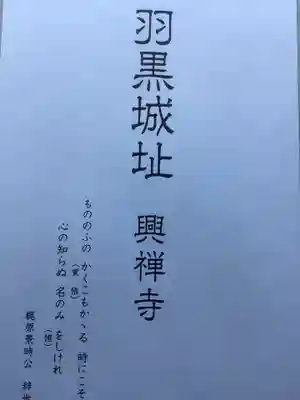 羽黒城址 興禅寺
もののふの かくこもかゝる 時にこそ
(覚悟)
心の知らぬ 名のみ をしけれ
(惜)
梶原景時公 辞世